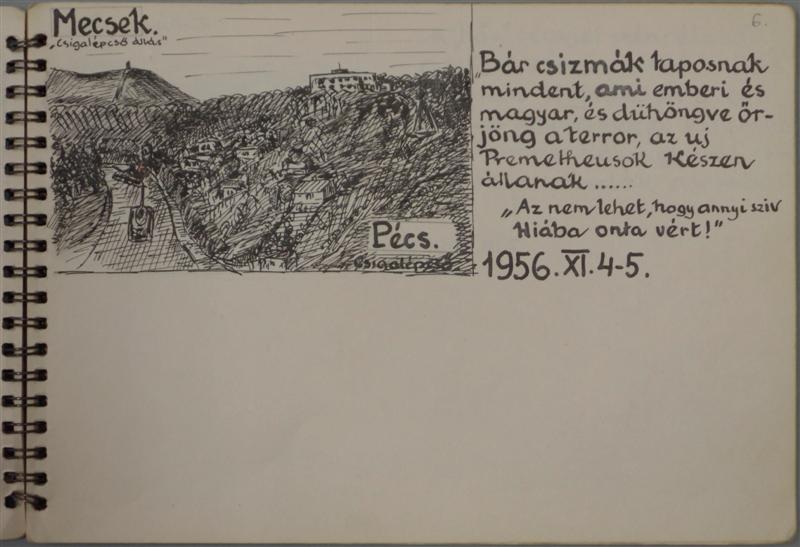 6.
Mecsek.
„Csigalépcső állás"
„Bár csizmák taposnak
mindent, ami emberi és
magyar, és dühöngve őr-
jöng a terror, az uj
Premetheusok Készen
állanak ......
„Az nem lehet, hogy annyi sziv
Hiába onta vért!"
1956. XI. 4-5.
Pécs.
Csigalépcső